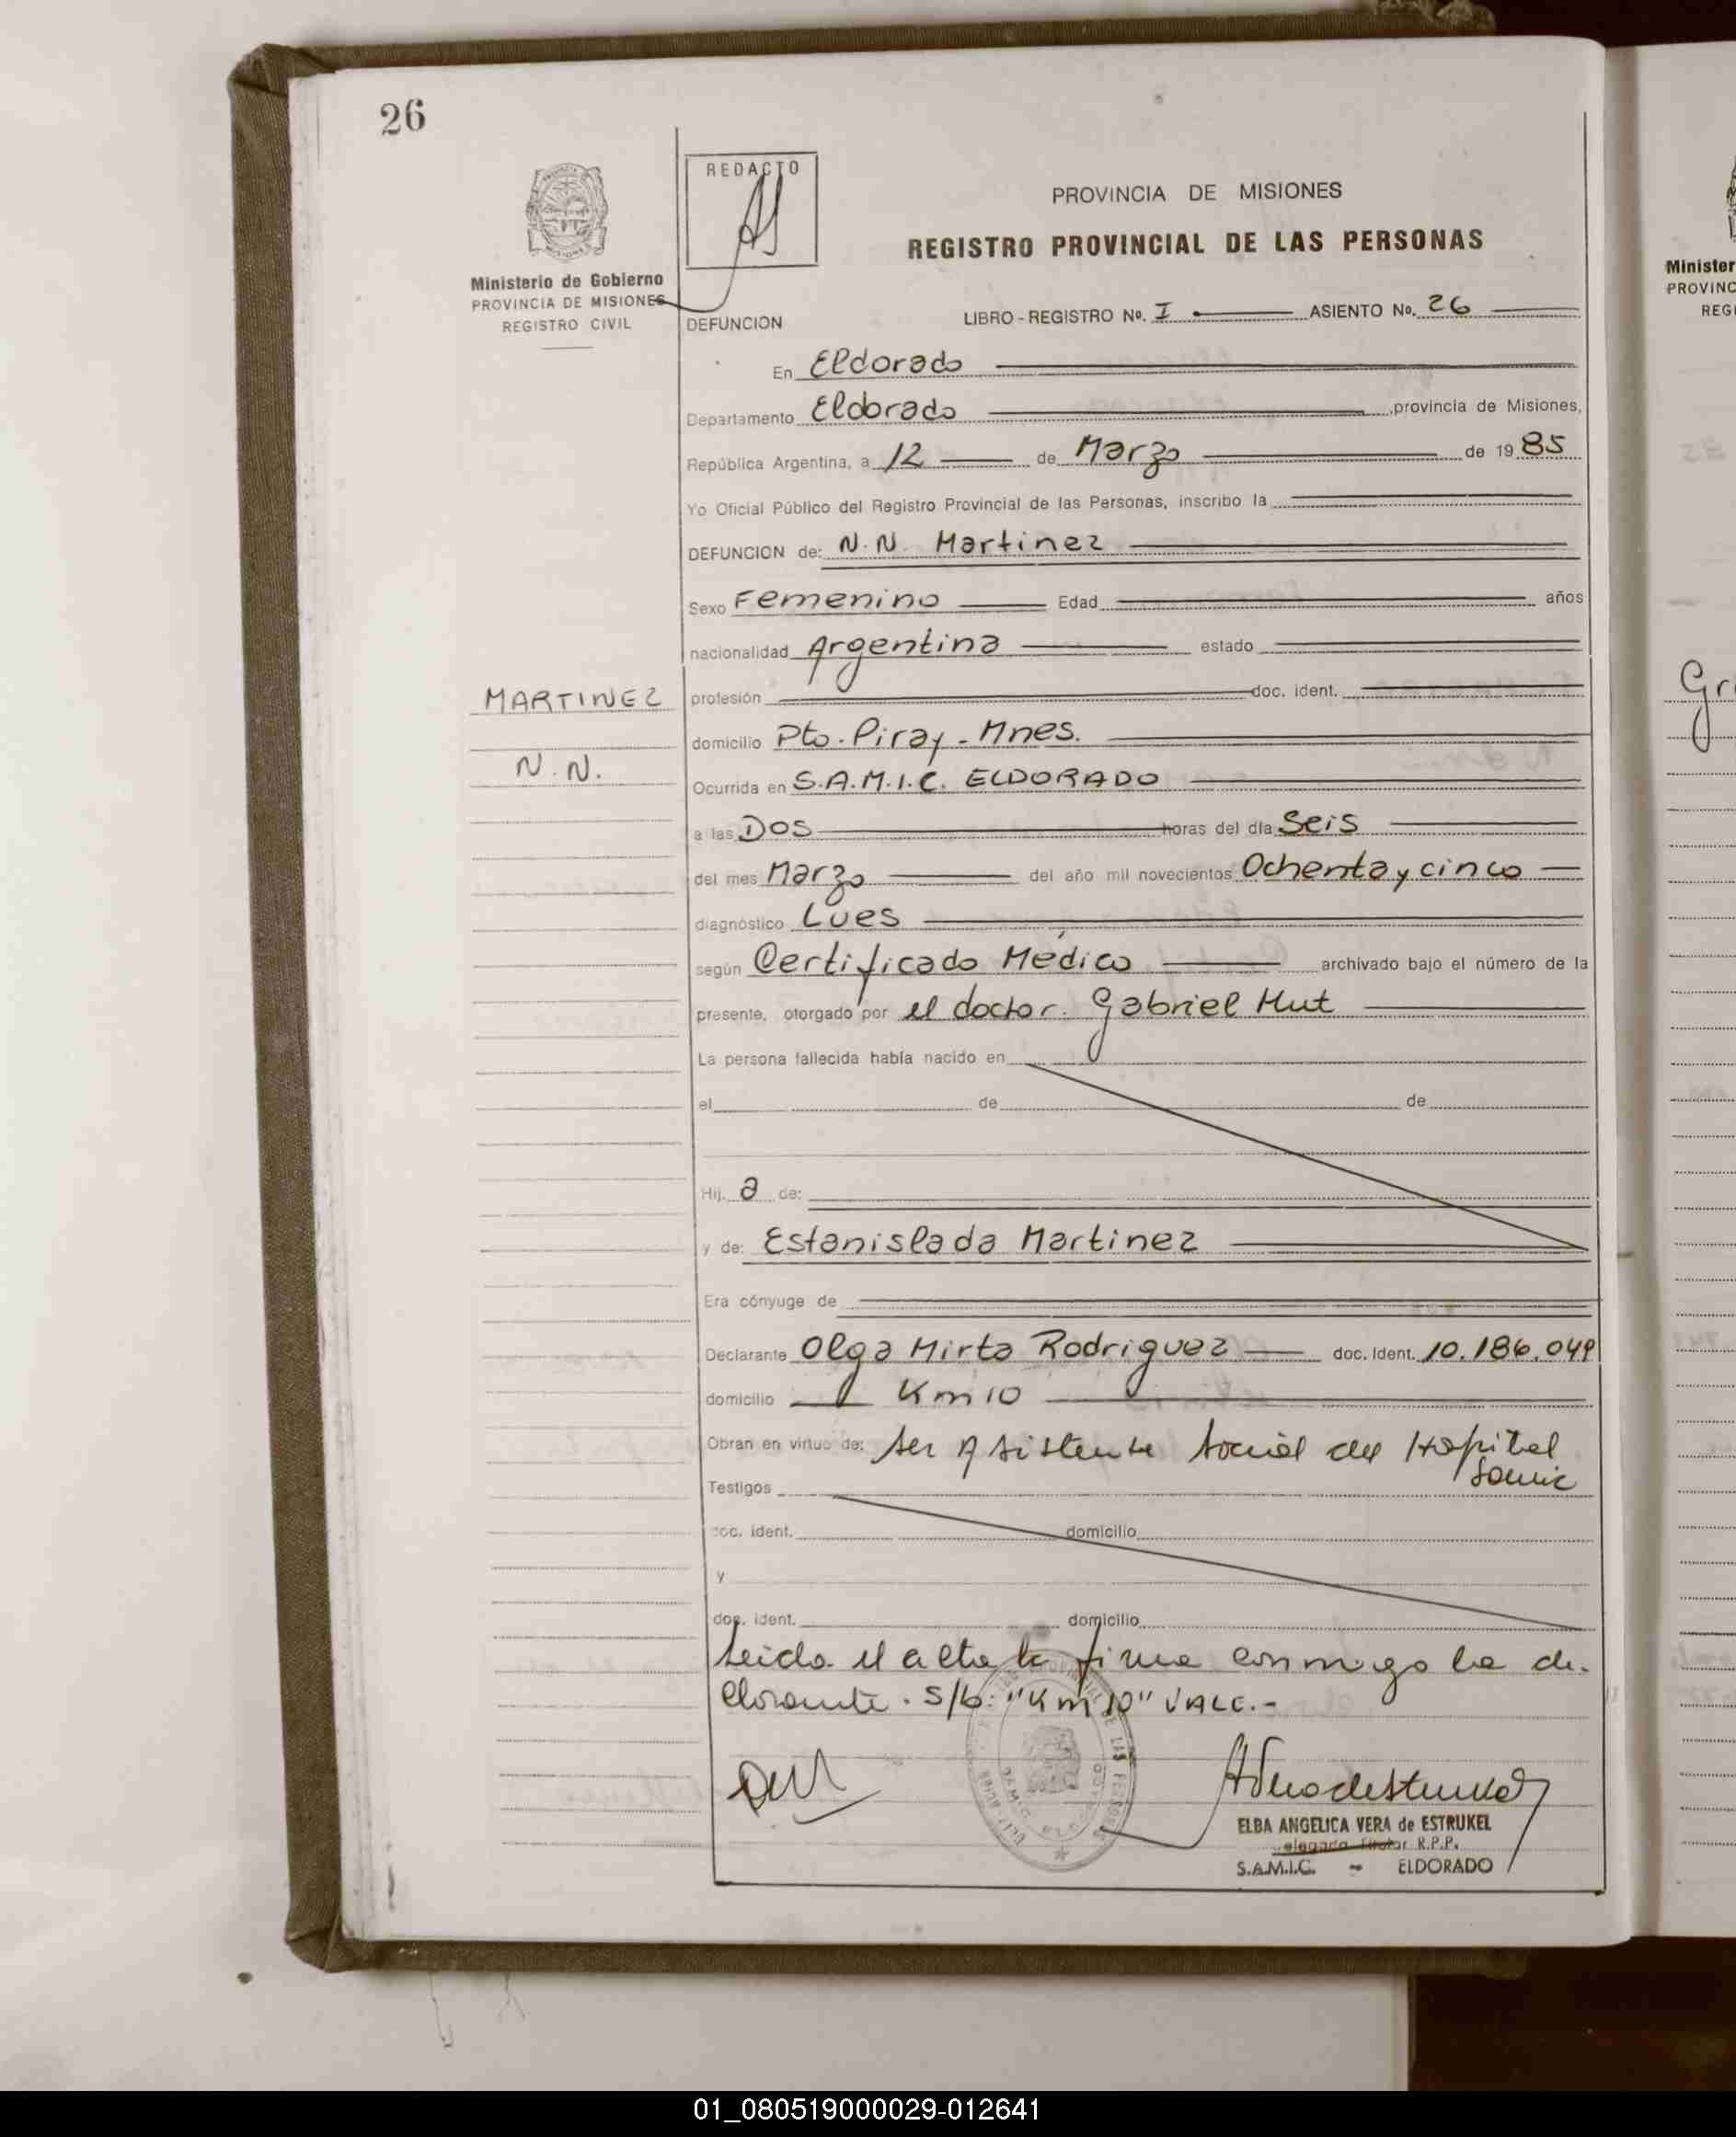 26
REDACTO
PROVINCIA DE MISIONES
REGISTRO PROVINCIAL DE LAS PERSONAS
Ministerio de Gobierno
PROVINCIA DE MISIONES
REGISTRO CIVIL
DEFUNCION
LIBRO - REGISTRO Nº. I ASIENTO No. 26
En Eldorado
Departamento Eldorado, provincia de Misiones,
República Argentina, a 12 de Marzo de 1985
Yo Oficial Público del Registro Provincial de las Personas, inscribo la
DEFUNCION de: N.N. Martinez
Sexo Femenino Edad años
nacionalidad Argentina estado
MARTINEZ
N.N.
profesión doc. ident.
domicilio Pto. Piray - Mnes.
Ocurrida en S.A.M.I.C. ELDORADO
a las DOS horas del día Seis
del mes Marzo del año mil novecientos Ochenta y cinco
diagnóstico Lues
según Certificado Médico archivado bajo el número de la
presente, otorgado por el doctor. Gabriel Hut
La persona fallecida había nacido en
el de de
Hij. a de:
y de: Estanislada Martinez
Era cónyuge de
Declarante Olga Mirta Rodriguez doc. Ident. 10.186.049
domicilio Km 10
Obran en virtud de: ser Asistente Social del Hospital
Samic
Testigos
doc. ident. domicilio
y
doc. ident. domicilio
Leida el acta la firma conmigo la de-
clarante. S/b: "Km 10" VALE.-
ELBA ANGELICA VERA de ESTRUKEL
elegada Titular R.P.P.
S.A.M.I.C. - ELDORADO
Minister
PROVINC
REGI
Gr
01_080519000029-012641